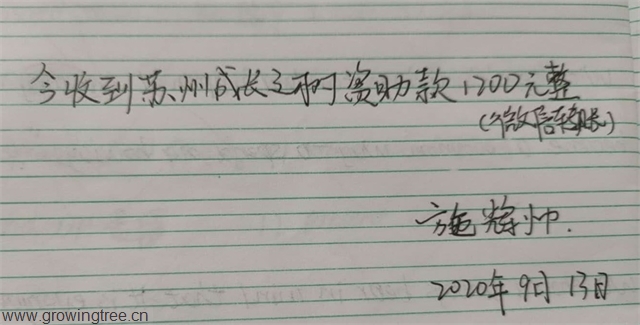 今收到苏州成长之树资助款1200元整
(微信转账)
施辉帅.
2020年9月13日
www.growingtree.cn